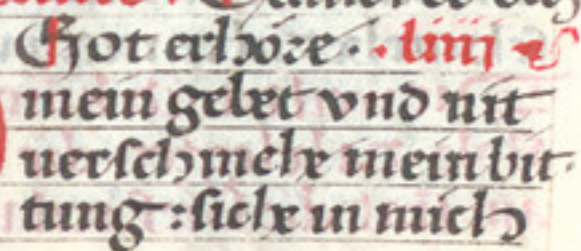 Got erhöre · · liiij
mein gebet vnd nit
verschmehe mein bit·
tung : siche in mich